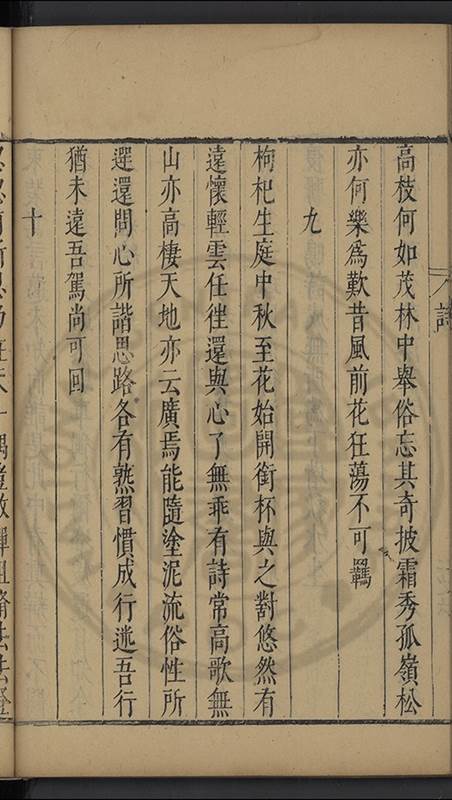 詩
高枝何如茂林中舉俗忘其奇披霜秀孤嶺松
亦何樂爲歎昔風前花狂蕩不可羈
九
枸杞生庭中秋至花始開銜杯與之對悠然有
遠懷輕雲任徃還與心了無乖有詩常高歌無
山亦高棲天地亦云廣焉能隨塗泥流俗性所
選還問心所諧思路各有熟習慣成行迷吾行
猶未遠吾駕尚可回
十